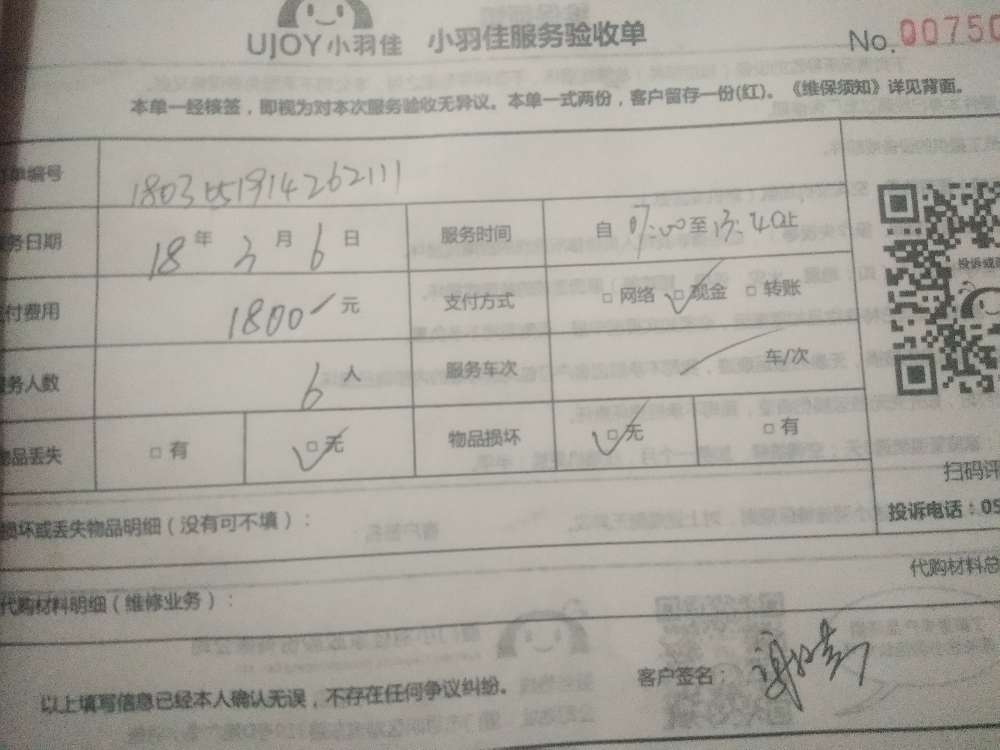 UJOY小羽佳 小羽佳服务验收单 No.00750
本单一经核签，即视为对本次服务验收无异议。本单一式两份，客户留存一份(红)。《维保须知》详见背面。
单编号
务日期 18 年 3 月 6 日 服务时间 自 07:00 至 13:40 止
付费用 1800 元 支付方式 □ 网络 □ 现金 □ 转账
务人数 6 人 服务车次 车/次
品丢失 □ 有 □ 无 物品损坏 □ 无 □ 有
投诉或
扫码评
损坏或丢失物品明细（没有可不填）： 投诉电话：05
代购材料明细（维修业务）： 代购材料总
以上填写信息已经本人确认无误，不存在任何争议纠纷。 客户签名：